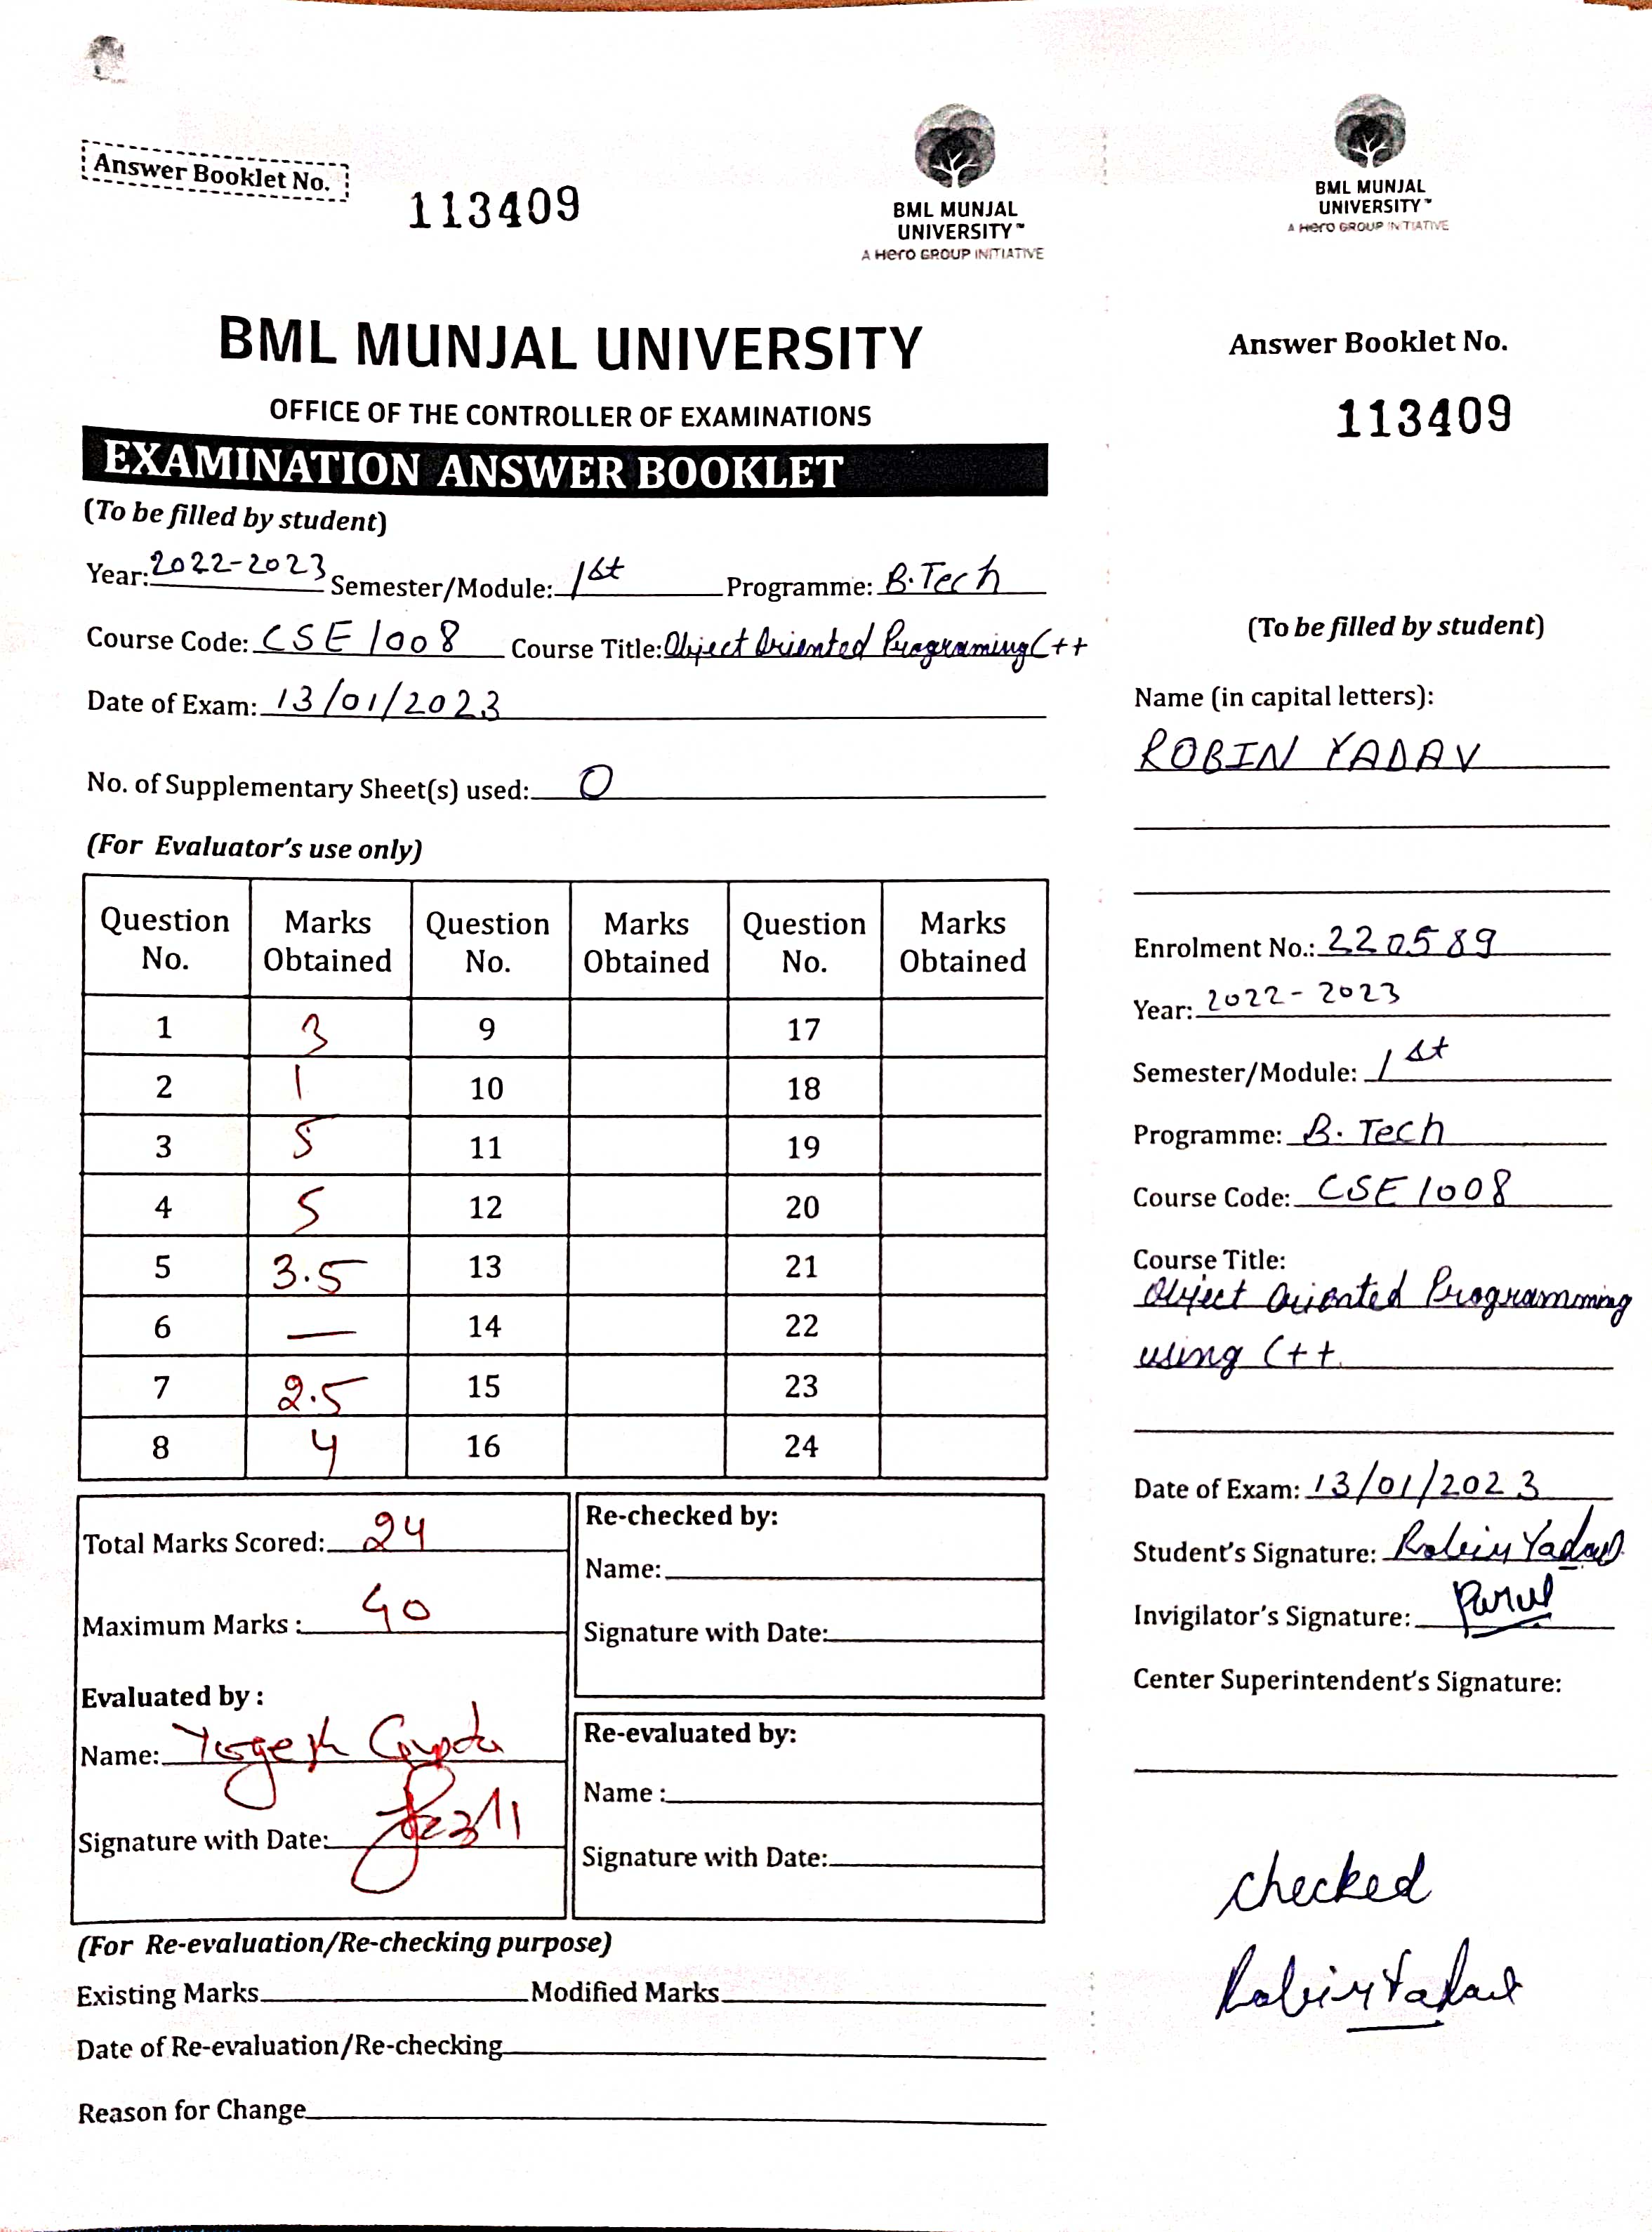 Answer Booklet No.
113409
BML MUNJAL
UNIVERSITY™
A Hero GROUP INITIATIVE
BML MUNJAL UNIVERSITY
OFFICE OF THE CONTROLLER OF EXAMINATIONS
EXAMINATION ANSWER BOOKLET
(To be filled by student)
Year: 2022-2023 Semester/Module: 1st Programme: B.Tech
Course Code: CSE1008 Course Title: Object Oriented Programing C++
Date of Exam: 13/01/2023
No. of Supplementary Sheet(s) used: 0
(For Evaluator's use only)
Question No. Marks Obtained Question No. Marks Obtained Question No. Marks Obtained
1 3 9 17
2 1 10 18
3 5 11 19
4 5 12 20
5 3.5 13 21
6 — 14 22
7 2.5 15 23
8 4 16 24
Total Marks Scored: 24
Maximum Marks : 40
Evaluated by :
Name: Yogesh Gupta
Signature with Date:
Re-checked by:
Name:
Signature with Date:
Re-evaluated by:
Name :
Signature with Date:
(For Re-evaluation/Re-checking purpose)
Existing Marks Modified Marks
Date of Re-evaluation/Re-checking
Reason for Change
BML MUNJAL
UNIVERSITY™
A Hero GROUP INITIATIVE
Answer Booklet No.
113409
(To be filled by student)
Name (in capital letters):
ROBIN YADAV
Enrolment No.: 220589
Year: 2022-2023
Semester/Module: 1st
Programme: B.Tech
Course Code: CSE1008
Course Title:
Object Oriented Programming
using C++.
Date of Exam: 13/01/2023
Student's Signature: Robin Yadav
Invigilator's Signature: Parul
Center Superintendent's Signature:
checked
Robin Yadav